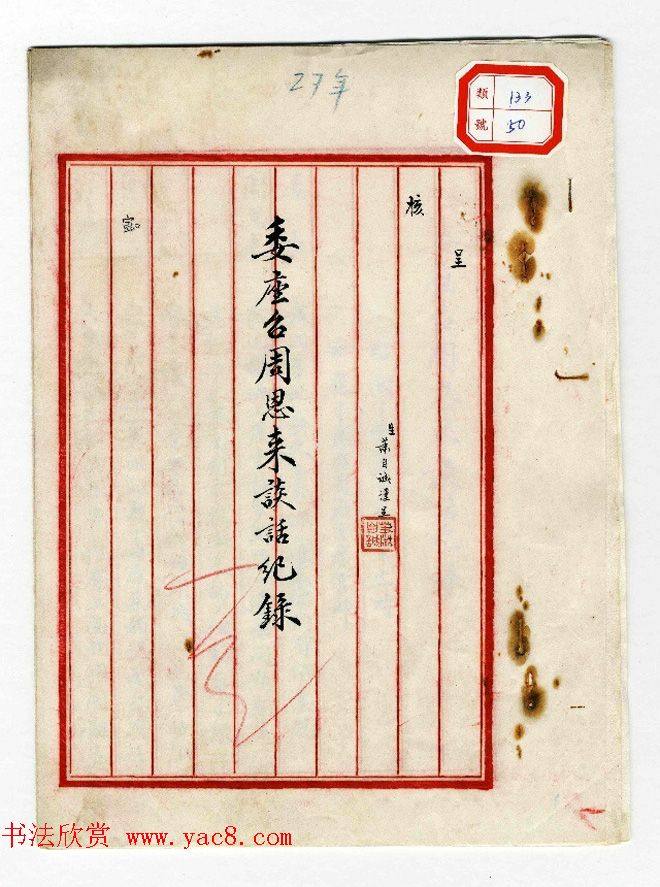 27年
類 133
號 50
呈
核
生葉自誠謹呈
委座召周恩来談話紀錄
密
书法欣赏 www.yac8.com